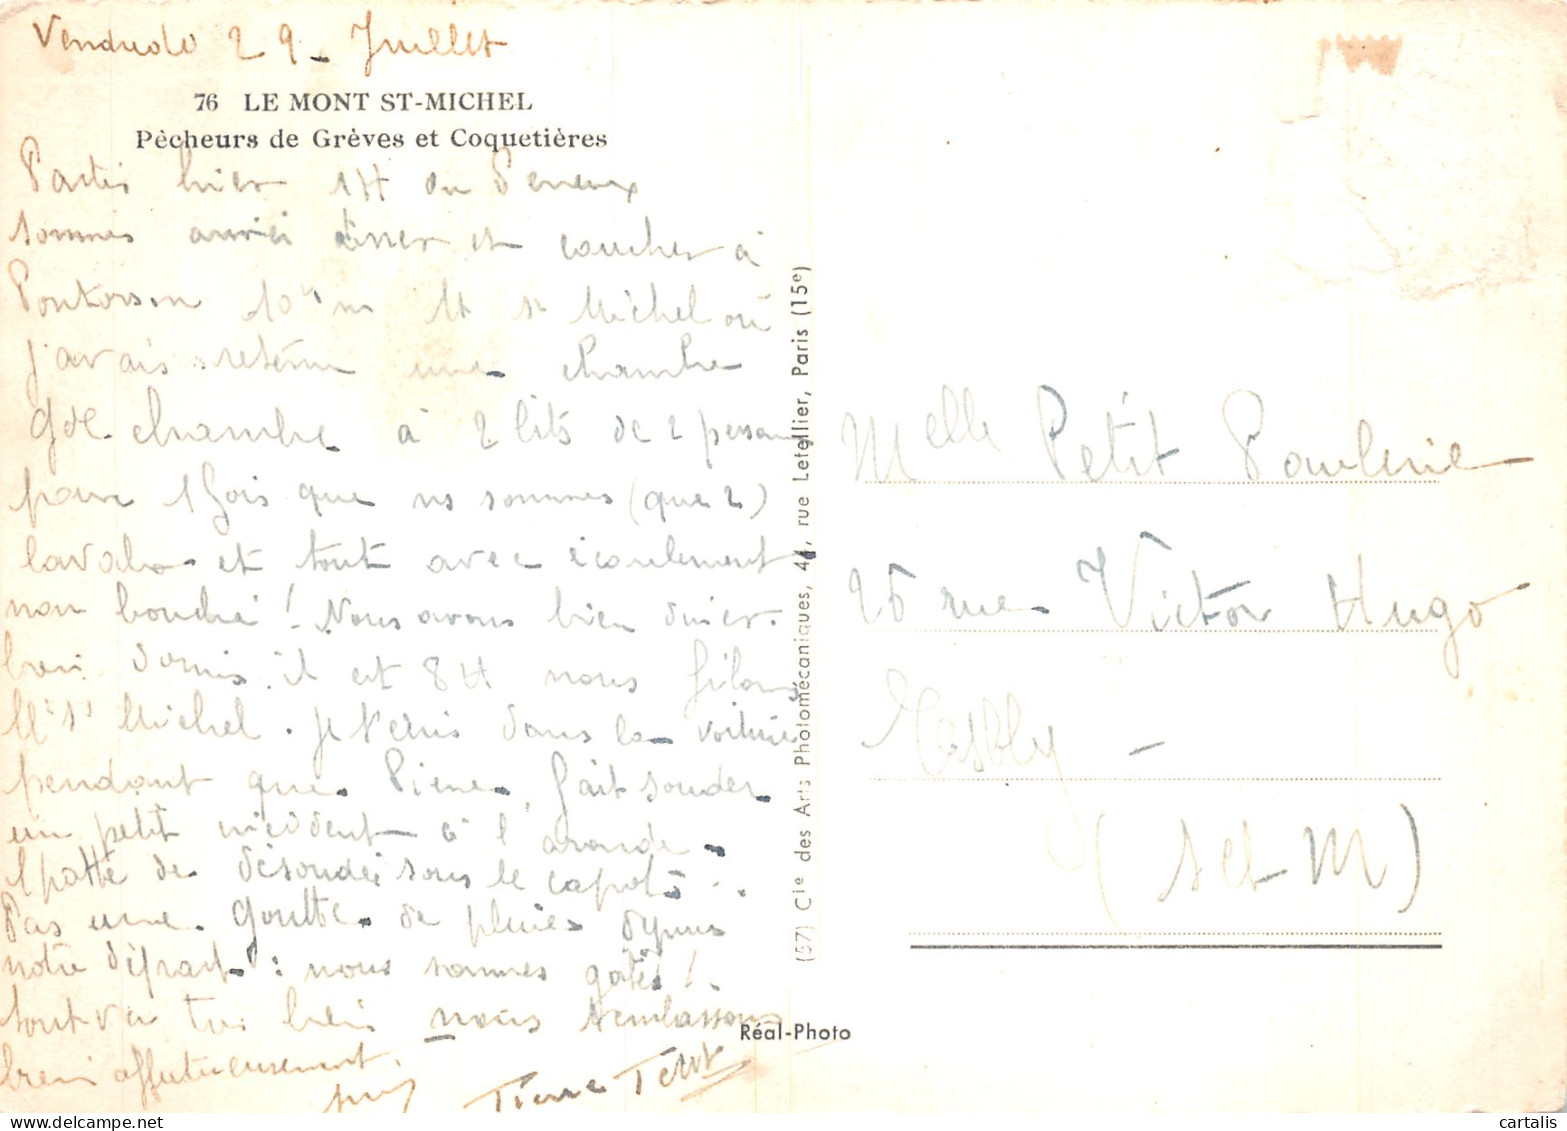 Vendredi 29 - Juillet
76 LE MONT ST-MICHEL
Pêcheurs de Grèves et Coquetières
Partis hier 1H du Perreux
sommes arrivés dîner et coucher à
Pontorson 10 km Mt St Michel où
j'avais retenu une chambre
gde chambre à 2 lits de 2 person
pour 1 fois que ns sommes (que 2)
lavabo et tout avec écoulement
non bouché ! Nous avons bien diner
bien dormis. il est 8H nous filons
Mt St Michel. je t'écris dans la voiture
pendant que Pierre fait souder
un petit incident à l'aronde
1 patte de désoudée sous le capot..
Pas une goutte de pluie depuis
notre départ : nous sommes gatés !
tout va très bien nous t'embrassons
bien affectueusement.
Pierre Petit
Melle Petit Paulerie
26 rue Victor Hugo
(S et M)
(57) Cie des Arts Photomécaniques, 44, rue Letellier, Paris (15e)
Réal-Photo
cartalis